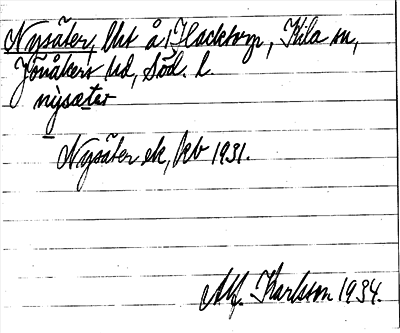 Nysäter, lht å Hacktorp, Kila sn,
Jönåkers hd, Söd. l.
nysæter
Nysäter ek, kb 1931.
Alf. Karlson 1934.